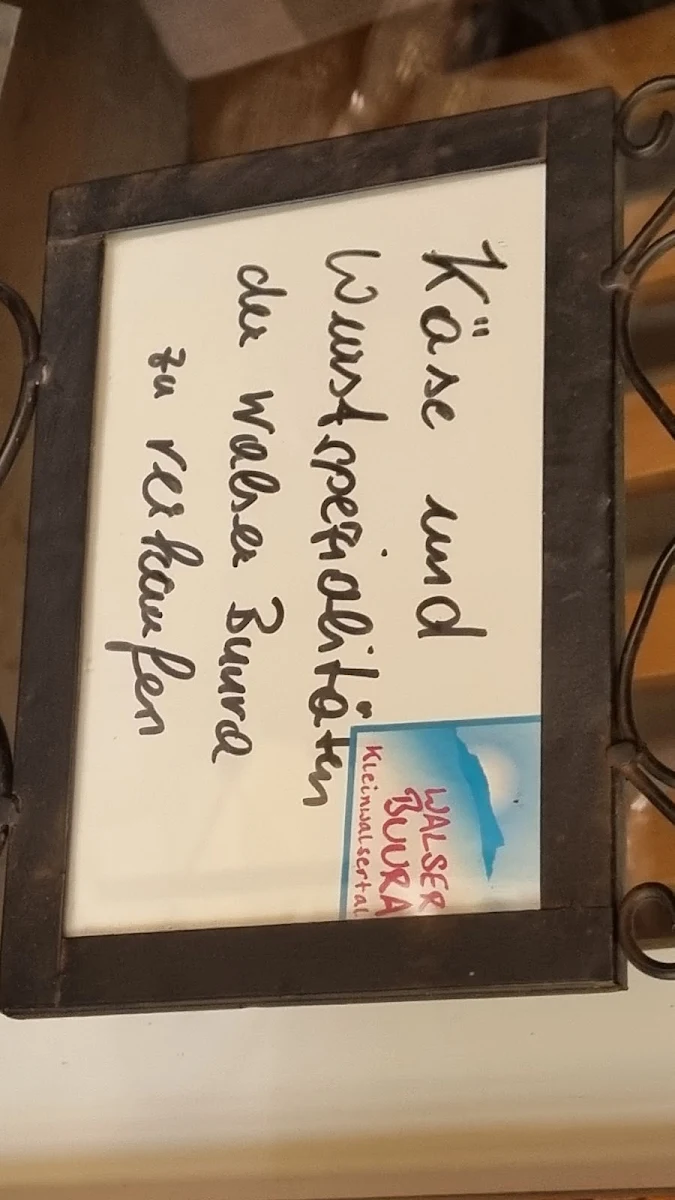 Käse und
Wurstspezialitäten
der Walser Buura
zu verkaufen
WALSER
BUURA
Kleinwalsertal